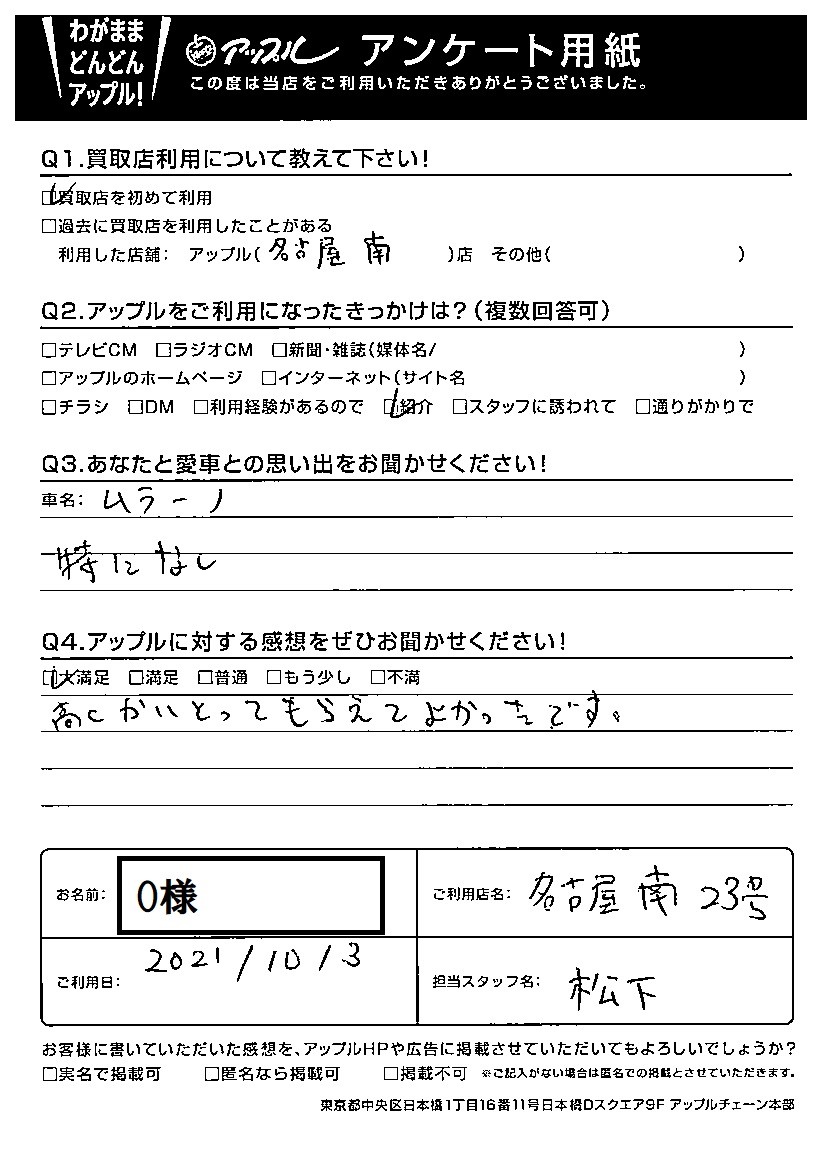 わがまま
どんどん
アップル!
アップル アンケート用紙
この度は当店をご利用いただきありがとうございました。
Q1.買取店利用について教えて下さい!
☑買取店を初めて利用
□過去に買取店を利用したことがある
利用した店舗: アップル(名古屋南)店 その他( )
Q2.アップルをご利用になったきっかけは?(複数回答可)
□テレビCM □ラジオCM □新聞・雑誌(媒体名/ )
□アップルのホームページ □インターネット(サイト名 )
□チラシ □DM □利用経験があるので ☑紹介 □スタッフに誘われて □通りがかりで
Q3.あなたと愛車との思い出をお聞かせください!
車名: ムラーノ
特になし
Q4.アップルに対する感想をぜひお聞かせください!
☑大満足 □満足 □普通 □もう少し □不満
高くかいとってもらえてよかったです。
お名前: O様
ご利用店名: 名古屋南23号
ご利用日: 2021/10/3
担当スタッフ名: 松下
お客様に書いていただいた感想を、アップルHPや広告に掲載させていただいてもよろしいでしょうか?
□実名で掲載可 □匿名なら掲載可 □掲載不可 ※ご記入がない場合は匿名での掲載とさせていただきます。
東京都中央区日本橋1丁目16番11号日本橋Dスクエア9F アップルチェーン本部